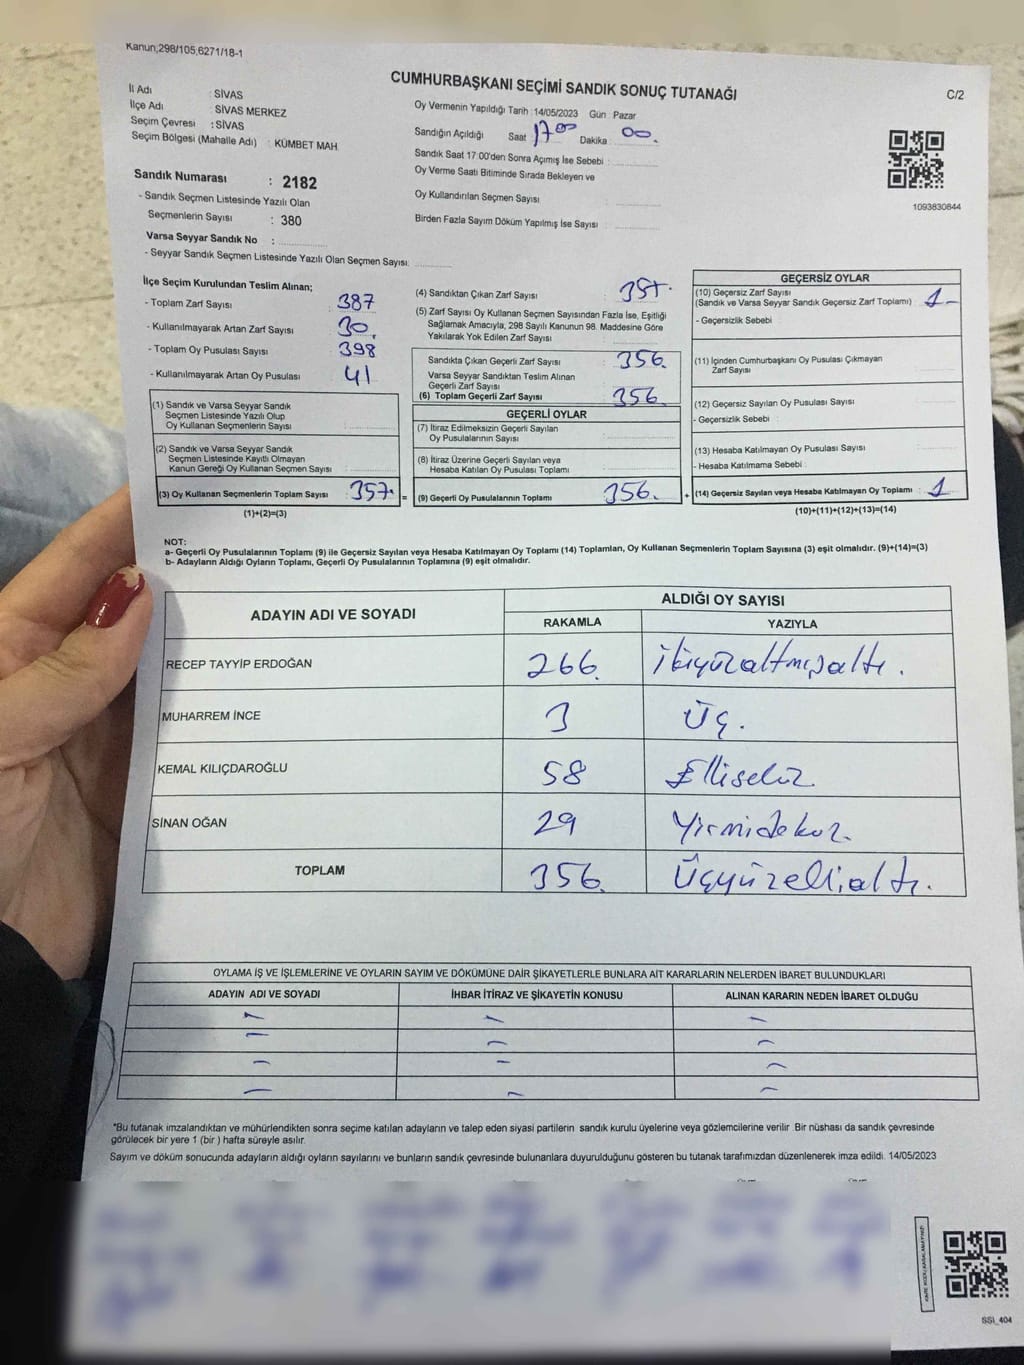 Kanun;298/105,6271/18-1
CUMHURBAŞKANI SEÇİMİ SANDIK SONUÇ TUTANAĞI
C/2
İl Adı : SİVAS
İlçe Adı : SİVAS MERKEZ
Seçim Çevresi : SİVAS
Seçim Bölgesi (Mahalle Adı) : KÜMBET MAH
Sandık Numarası : 2182
- Sandık Seçmen Listesinde Yazılı Olan
Seçmenlerin Sayısı : 380
Varsa Seyyar Sandık No :
- Seyyar Sandık Seçmen Listesinde Yazılı Olan Seçmen Sayısı:
Oy Vermenin Yapıldığı Tarih :14/05/2023 Gün : Pazar
Sandığın Açıldığı Saat : 17 00 Dakika : 00.
Sandık Saat 17:00'den Sonra Açımış İse Sebebi :
Oy Verme Saati Bitiminde Sırada Bekleyen ve
Oy Kullandırılan Seçmen Sayısı :
Birden Fazla Sayım Döküm Yapılmış İse Sayısı :
1093830844
İlçe Seçim Kurulundan Teslim Alınan;
- Toplam Zarf Sayısı : 387
- Kullanılmayarak Artan Zarf Sayısı : 30.
- Toplam Oy Pusulası Sayısı : 398
- Kullanılmayarak Artan Oy Pusulası : 41
(1) Sandık ve Varsa Seyyar Sandık
Seçmen Listesinde Yazılı Olup
Oy Kullanan Seçmenlerin Sayısı :
(2) Sandık ve Varsa Seyyar Sandık
Seçmen Listesinde Kayıtlı Olmayan
Kanun Gereği Oy Kullanan Seçmen Sayısı :
(3) Oy Kullanan Seçmenlerin Toplam Sayısı : 357. =
(1)+(2)=(3)
(4) Sandıktan Çıkan Zarf Sayısı : 357.
(5) Zarf Sayısı Oy Kullanan Seçmen Sayısından Fazla İse, Eşitliği
Sağlamak Amacıyla, 298 Sayılı Kanunun 98. Maddesine Göre
Yakılarak Yok Edilen Zarf Sayısı :
Sandıkta Çıkan Geçerli Zarf Sayısı : 356.
Varsa Seyyar Sandıktan Teslim Alınan
Geçerli Zarf Sayısı :
(6) Toplam Geçerli Zarf Sayısı : 356.
GEÇERLİ OYLAR
(7) İtiraz Edilmeksizin Geçerli Sayılan
Oy Pusulalarının Sayısı :
(8) İtiraz Üzerine Geçerli Sayılan veya
Hesaba Katılan Oy Pusulası Toplamı :
(9) Geçerli Oy Pusulalarının Toplamı : 356. +
GEÇERSİZ OYLAR
(10) Geçersiz Zarf Sayısı
(Sandık ve Varsa Seyyar Sandık Geçersiz Zarf Toplamı) : 1-
- Geçersizlik Sebebi :
(11) İçinden Cumhurbaşkanı Oy Pusulası Çıkmayan
Zarf Sayısı :
(12) Geçersiz Sayılan Oy Pusulası Sayısı :
- Geçersizlik Sebebi :
(13) Hesaba Katılmayan Oy Pusulası Sayısı :
- Hesaba Katılmama Sebebi :
(14) Geçersiz Sayılan veya Hesaba Katılmayan Oy Toplamı : 1
(10)+(11)+(12)+(13)=(14)
NOT:
a- Geçerli Oy Pusulalarının Toplamı (9) ile Geçersiz Sayılan veya Hesaba Katılmayan Oy Toplamı (14) Toplamları, Oy Kullanan Seçmenlerin Toplam Sayısına (3) eşit olmalıdır. (9)+(14)=(3)
b- Adayların Aldığı Oyların Toplamı, Geçerli Oy Pusulalarının Toplamına (9) eşit olmalıdır.
ADAYIN ADI VE SOYADI
ALDIĞI OY SAYISI
RAKAMLA YAZIYLA
RECEP TAYYİP ERDOĞAN 266. İkiyüzaltmışaltı.
MUHARREM İNCE 3 Üç.
KEMAL KILIÇDAROĞLU 58 Ellisekiz
SİNAN OĞAN 29 Yirmidokuz.
TOPLAM 356. Üçyüzelli,altı.
OYLAMA İŞ VE İŞLEMLERİNE VE OYLARIN SAYIM VE DÖKÜMÜNE DAİR ŞİKAYETLERLE BUNLARA AİT KARARLARIN NELERDEN İBARET BULUNDUKLARI
ADAYIN ADI VE SOYADI İHBAR İTİRAZ VE ŞİKAYETİN KONUSU ALINAN KARARIN NEDEN İBARET OLDUĞU
*Bu tutanak imzalandıktan ve mühürlendikten sonra seçime katılan adayların ve talep eden siyasi partilerin sandık kurulu üyelerine veya gözlemcilerine verilir. Bir nüshası da sandık çevresinde
görülecek bir yere 1 (bir ) hafta süreyle asılır.
Sayım ve döküm sonucunda adayların aldığı oyların sayılarını ve bunların sandık çevresinde bulunanlara duyurulduğunu gösteren bu tutanak tarafımızdan düzenlenerek imza edildi. 14/05/2023
SSI_404